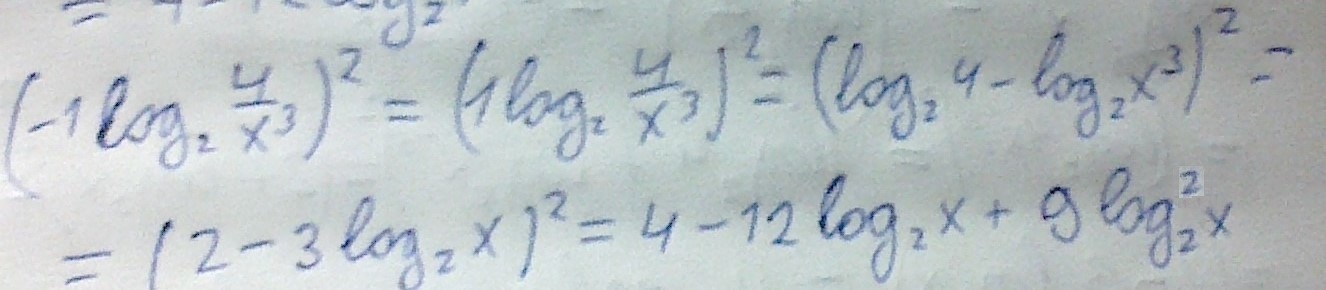 (-1 log₂ 4/x³)² = (1 log₂ 4/x³)² = (log₂ 4 - log₂ x³)² =
= (2 - 3 log₂ x)² = 4 - 12 log₂ x + 9 log₂² x